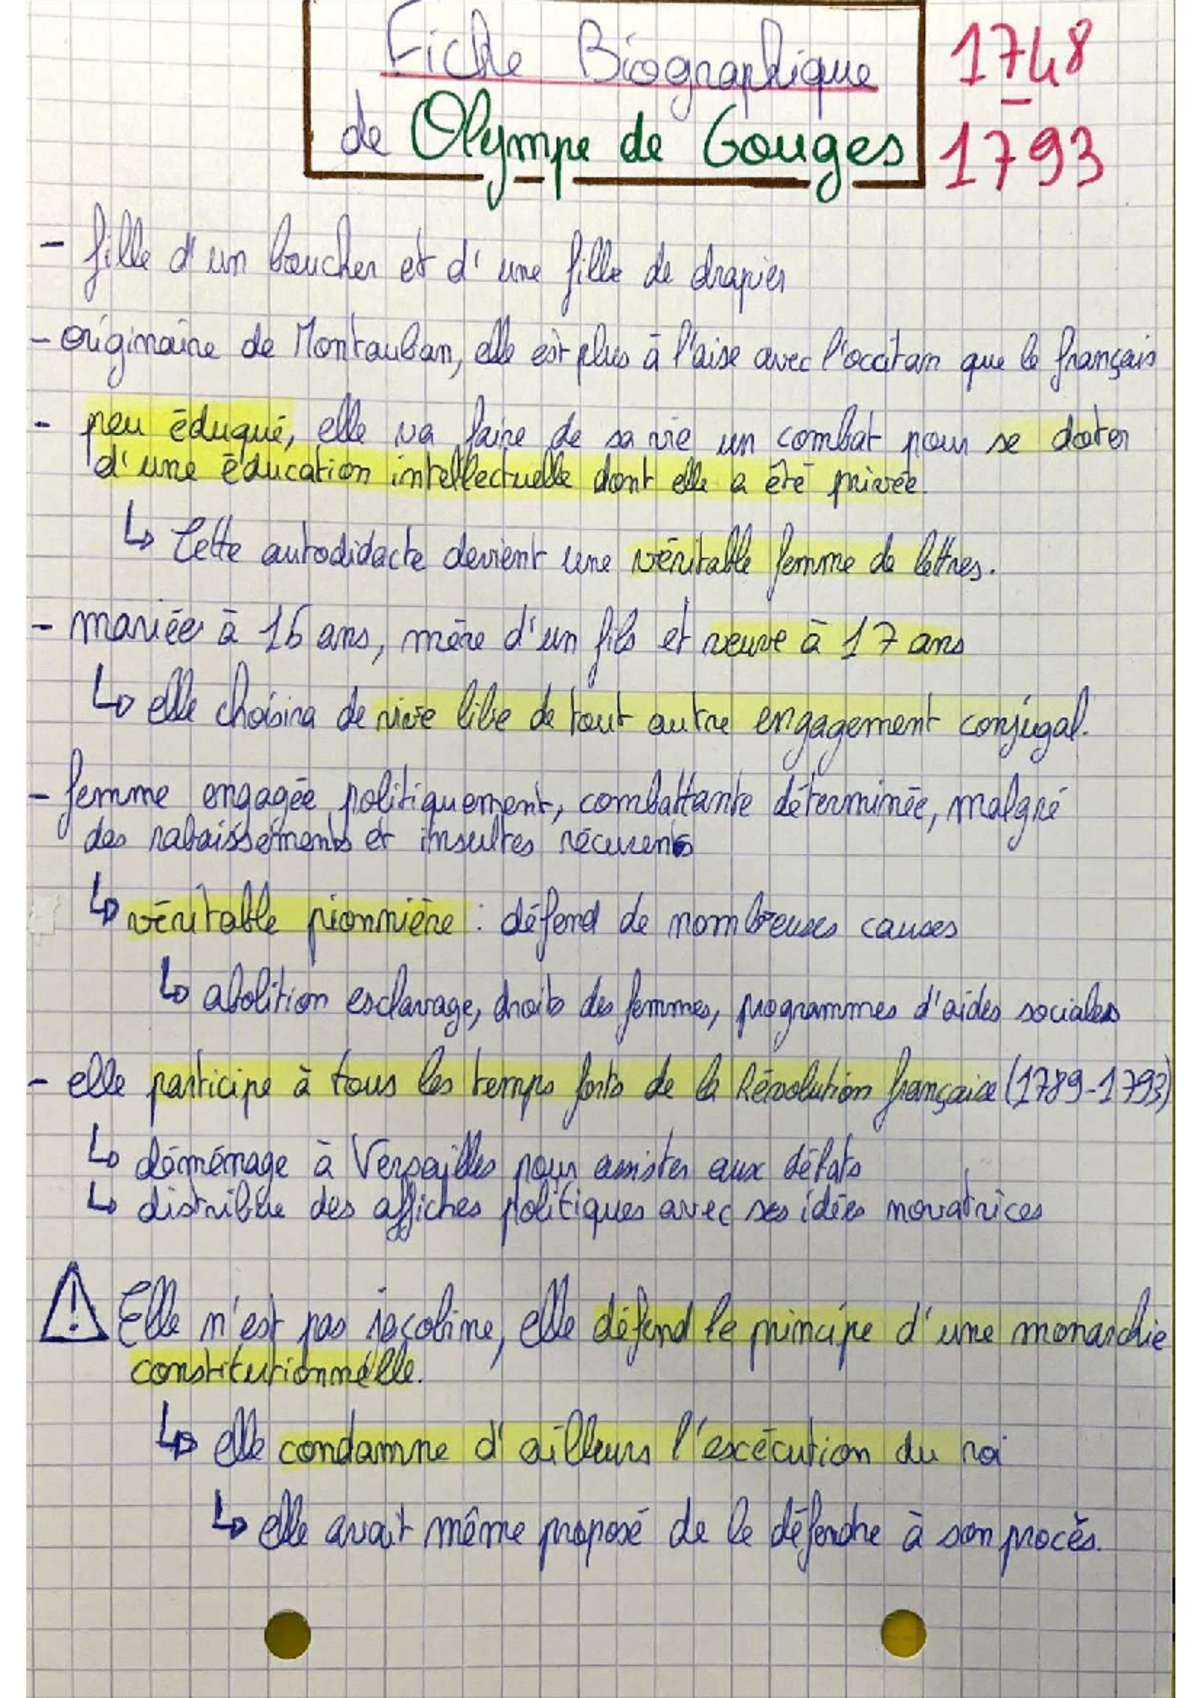 Fiche Biographique
de Olympe de Gouges
1748
-
1793
- fille d'un boucher et d'une fille de drapier
- originaire de Montauban, elle est plus à l'aise avec l'occitan que le français
- peu éduqué, elle va faire de sa vie un combat pour se doter
d'une éducation intellectuelle dont elle a été privée.
↳ Cette autodidacte devient une véritable femme de lettres.
- mariée à 16 ans, mère d'un fils et veuve à 17 ans
↳ elle choisira de vivre libre de tout autre engagement conjugal.
- femme engagée politiquement, combattante déterminée, malgré
des rabaissements et insultes récurents
↳ véritable pionnière : défend de nombreuses causes
↳ abolition esclavage, droits des femmes, programmes d'aides sociales
- elle participe à tous les temps forts de la Révolution française (1789-1793)
↳ déménage à Versailles pour assister aux débats
↳ distribue des affiches politiques avec ses idées novatrices
⚠ Elle n'est pas jacobine, elle défend le principe d'une monarchie
constitutionnelle.
↳ elle condamne d'ailleurs l'exécution du roi
↳ elle avait même proposé de le défendre à son procès.